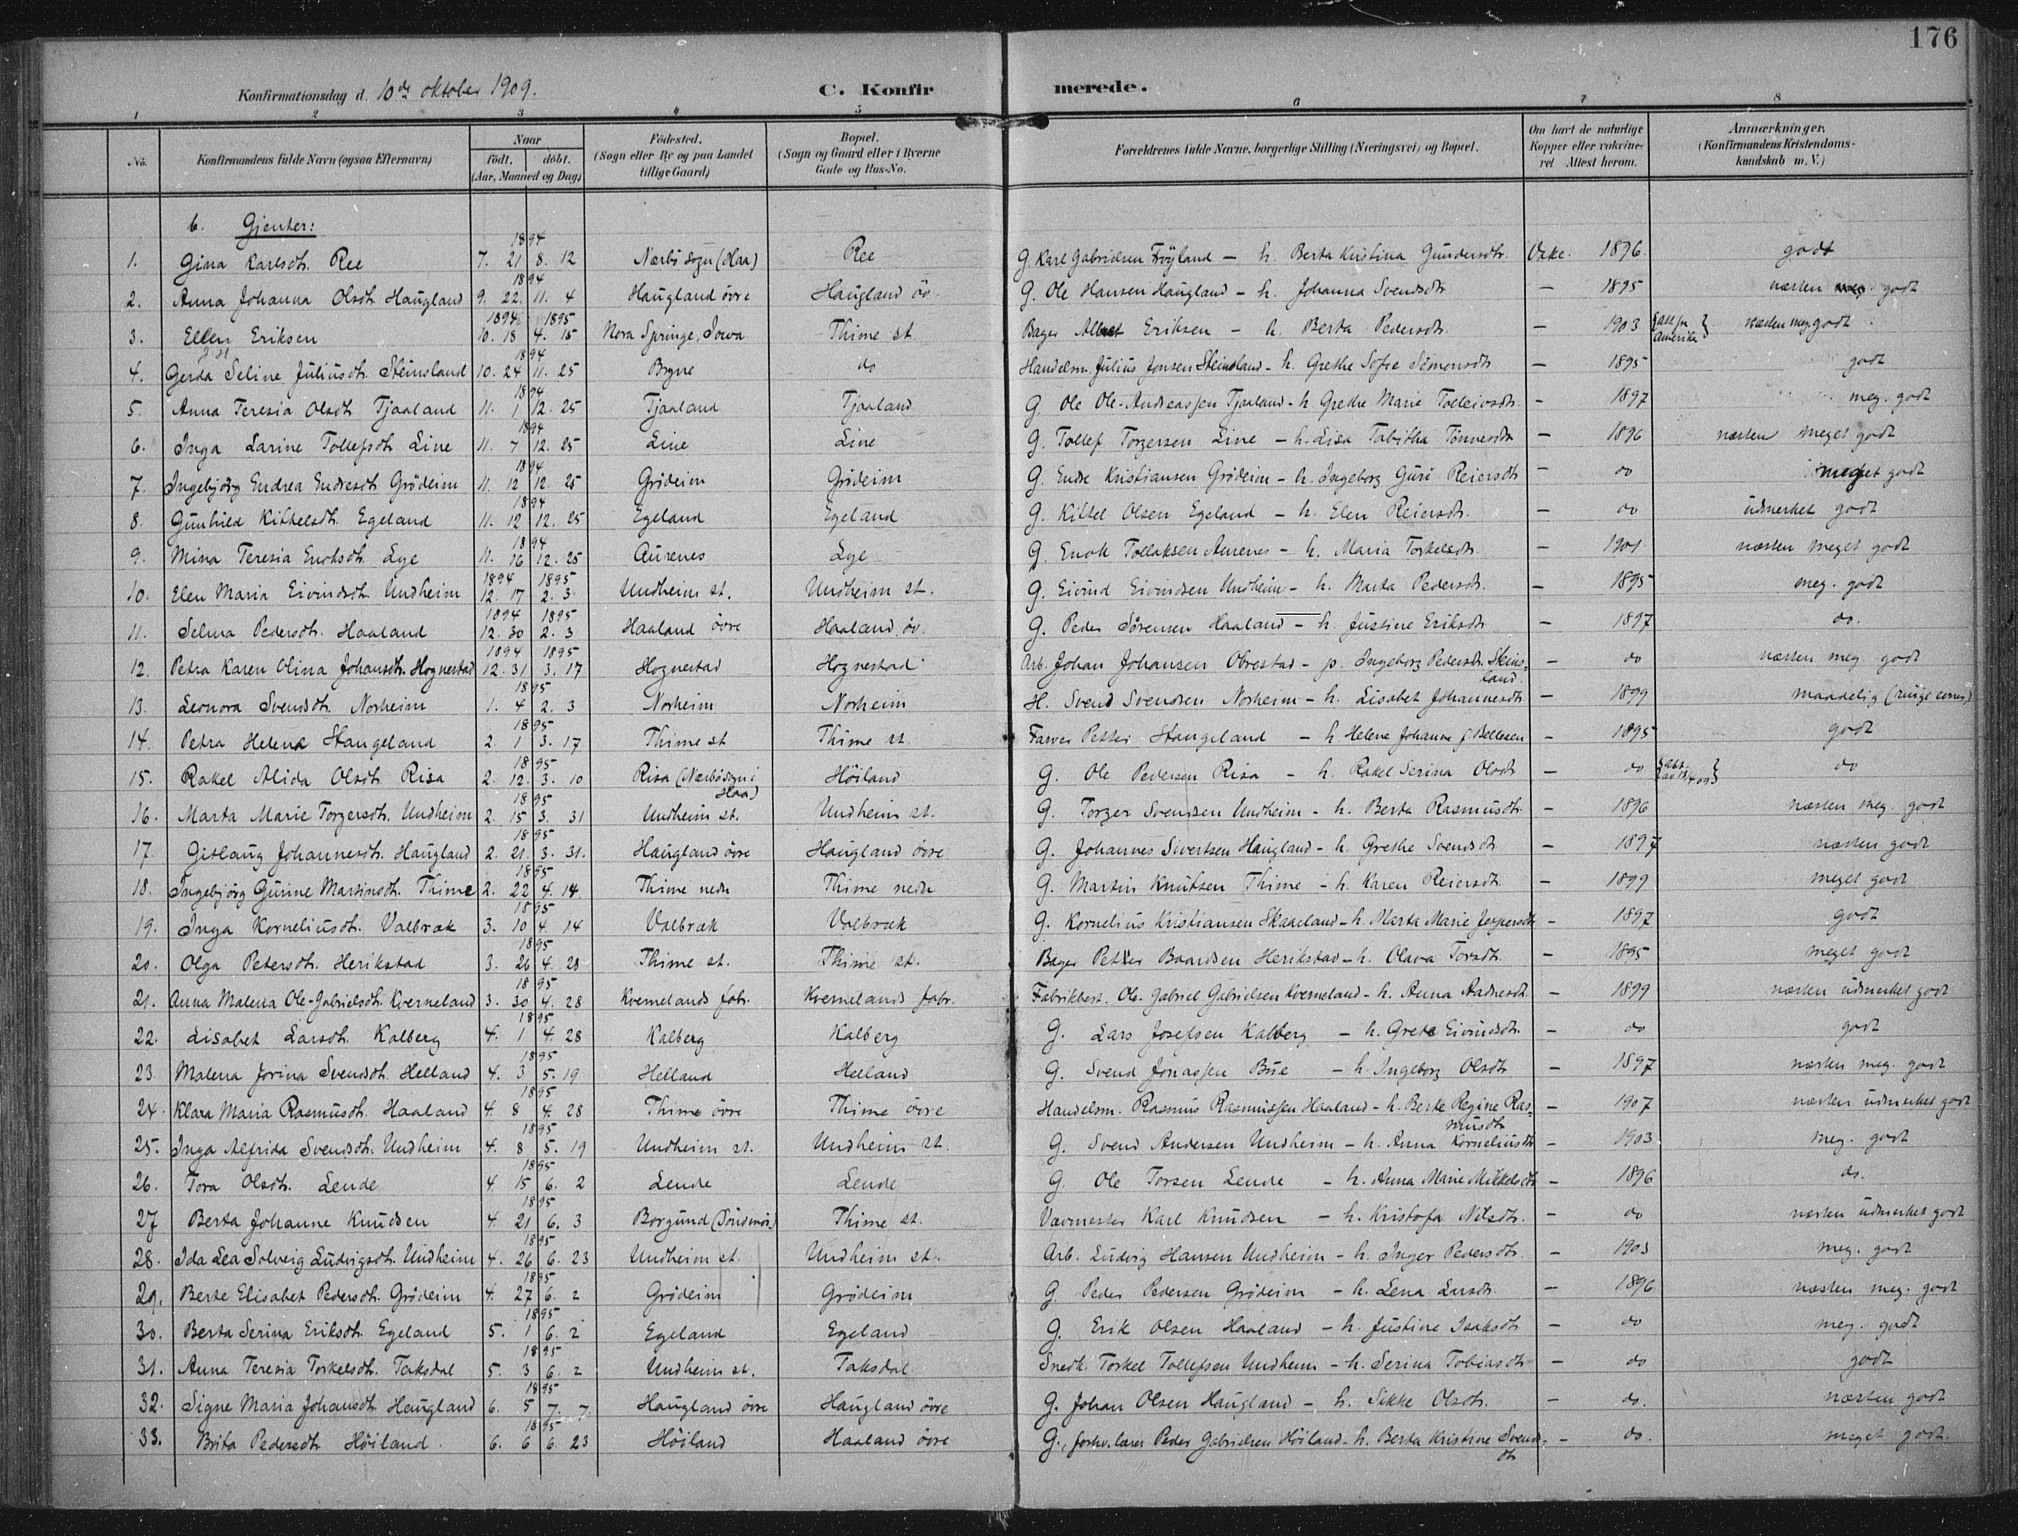 176
Konfirmationsdag d. 10de oktober 1909. C. Konfirmerede.
1 2 3 4 5 6 7 8
No. Konfirmandens fulde Navn (ogsaa Efternavn) Naar født. døbt. (Aar, Maaned og Dag) Fødested. (Sogn eller By og paa Landet tillige Gaard) Bopæl. (Sogn og Gaard eller i Byerne Gade og Hus-No. Forældrenes fulde Navne, borgerlige Stilling (Næringsvei) og Bopæl. Om havt de naturlige Kopper eller vakcineret Attest herom. Anmærkninger. (Konfirmandens Kristendomskundskab m. V.)
b. Gjenter:
1. Gina Karlsdt. Ree 1894 7. 21 8. 12 Nærbø sogn (Haa) Ree G. Karl Gabrielsen Frøyland – h. Berta Kristina Gundersdtr. Vakc. 1896 godt
2. Anna Johanna Olsdt. Haugland 1894 9. 22. 11. 4 Haugland øvre Haugland øv. G. Ole Hansen Haugland – h. Johanna Svendsdt – 1895 næsten godt
3. Ellen Eriksen 1894 1895 10. 18 4. 15 Nora Springe, Iowa Thime st. Bager Eriksen – h. Berta Pedersdt. – 1903 Amerika næsten meg. godt
4. Gerda Seline Juliusdt. Steinsland 1894 10. 24 11. 25 Bryne do Handelsm. Julius Jonsen Steinsland – h. Grethe Sofie Simonsdt – 1895 godt
5. Anna Teresia Olsdt. Tjaaland 1894 11. 1 12. 25 Tjaaland Tjaaland G. Ole Ole-Andreassen Tjaaland – h. Grethe Marie Tolleivsdt. – 1897 meg. godt
6. Inga Larine Tollefsdt. Line 1894 11. 7 12. 25 Line Line G. Tollef Torgersen Line – h. Lisa Tabitha Tønnesdt – 1896 næsten meget godt
7. Ingebjørg Endrea Endresdt. Grødeim 1894 11. 12 12. 25 Grødeim Grødeim G. Endre Kristiansen Grødeim – h. Ingeborg Guri Reiersdt – do meget godt
8. Gunhild Kittelsdt. Egeland 1894 11. 12 12. 25 Egeland Egeland G. Kittel Olsen Egeland – h. Elen Reiersdt. – do udmerket godt
9. Mina Teresia Enoksdt. Lye 1894 11. 16 12. 25 Aurenes Lye G. Enok Tollaksen Aurenes – h. Maria Torkelsdt. – 1901 næsten meget godt
10. Elen Maria Eivindsdt. Undheim 1894 1895 12. 17 2. 3 Undheim st. Undheim st. G. Eivind Eivindsen Undheim – h. Marta Pedersdt. – 1895 meg. godt
11. Selma Pedersdt. Haaland 1894 1895 12. 30 2. 3 Haaland øvre Haaland øv. G. Peder Sørensen Haaland – h. Justine Eriksdt – 1897 do.
12. Petra Karen Olina Johansdt. Hognestad 1894 1895 12. 31 3. 17 Hognestad Hognestad Arb. Johan Johansen Obrestad – p. Ingeborg Pedersdt. Skinsland. – do næsten meg. godt
13. Leonora Svendsdt. Norheim 1895 1. 4 2. 3 Norheim Norheim H. Svend Svendsen Norheim – h. Lisabet Johannesdt – 1899 maadelig
14. Petra Helene Stangeland 1895 2. 1 3. 17 Thime st Thime st. Farver Petter Stangeland – h Helene Johanne f. Bellesen – 1895 godt
15. Rakel Alida Olsdt. Risa 1895 2. 12. 3. 10 Risa (Nærbø sogn i Haa) Høiland G. Ole Pedersen Risa – h. Rakel Serina Olsdt – do do
16. Marta Marie Torgersdt. Undheim 1895 2. 15 3. 31 Undheim st. Undheim st. G. Torger Svendsen Undheim – h. Berta Rasmusdt. – 1896 næsten meg. godt
17. Gislaug Johannesdt. Haugland 1895 2. 21. 3. 31. Haugland øvre Haugland øvre G. Johannes Sivertsen Haugland – h. Grethe Svendsdt. – 1897 næsten godt
18. Ingebjørg Gurine Martinsdt. Thime 1895 2. 22 4. 14 Thime nedr Thime nedr G. Martin Knutsen Thime – h. Karen Reiersdt. – 1899 meget godt
19. Inga Korneliusdt. Valbræk 1895 3. 10 4. 14 Valbræk Valbræk G. Kornelius Kristiansen Skaaeland – h. Marta Marie Jespersdt – 1897 godt
20. Olga Petersdt. Herikstad 1895 3. 26 4. 28 Thime st. Thime st. Bager Petter Baardsen Herikstad – h. Olava Torsdt. – 1895 meget godt
21. Anna Malena Ole-Gabrielsdt. Kverneland 1895 3. 30 4. 28 Kvernelands fabr. Kvernelands fabr. Fabrikbest. Ole-Gabriel Gabrielsen Kverneland – h. Anna Aadnesdt – 1899 næsten udmerket godt
22. Lisabet Larsdt. Kalberg 1895 4. 1 4. 28 Kalberg Kalberg G. Lars Josefsen Kalberg – h. Grete Eivindsdt. – do godt
23. Malena Jorina Svendsdt. Helland 1895 4. 3 5. 19 Helland Helland G. Svend Jonassen Bue – h. Ingeborg Olsdt – 1897 næsten meg. godt
24. Klara Maria Rasmusdt. Haaland 1895 4. 8 4. 28 Thime øvre Thime øvre Handelsm. Rasmus Rasmussen Haaland – h. Berte Regine Rasmusdt – 1907 næsten udmerket godt
25. Inga Alfrida Svendsdt. Undheim 1895 4. 8 5. 19 Undheim st. Undheim st. G. Svend Andersen Undheim – h. Anna Korneliusdt – 1903 meg. godt
26. Tora Olsdt. Lende 1895 4. 15 6. 2 Lende Lende G. Ole Torsen Lende – h. Anna Marie Mikkelsdt – 1896 do.
27 Berta Johanne Knudsen 1895 4. 21 6. 3 Borgund (Søndmør) Thime st. Vævmester Karl Knudsen – h. Kristofa Nilsdt. – do næsten udmerket godt
28. Ida Lea Solveig Ludvigsdt. Undheim 1895 4. 26 6. 23 Undheim st. Undheim st. Arb. Ludvig Hansen Undheim – h. Inger Pedersdt. – 1903 meg. godt
29. Berte Elisabet Pedersdt. Grødeim 1895 4. 27 6. 2 Grødeim Grødeim G. Peder Pedersen Grødeim – h. Lena Larsdt. – 1896 næsten meg. godt
30. Berta Serina Eriksdt. Egeland 1895 5. 1 6. 2 Egeland Egeland G. Erik Olsen Haaland – h. Justine Isaksdt – do meg. godt
31. Anna Teresia Torkelsdt. Taksdal 1895 5. 3 6. 2 Undheim st. Taksdal Snedk. Torkel Tollefsen Undheim – h. Serina Tobiasdt – do godt
32. Signe Maria Johansdt. Haugland 1895 6. 5 7. 7 Haugland øvre Haugland øvre G. Johan Olsen Haugland – h. Sikke Olsdt. – do. næsten godt
33. Brita Pedersdt Høiland. 1895 6. 6 6. 23 Høiland Haaland øvre G., forhv. lærer Peder Gabrielsen Høiland – h. Berta Kristine Svendsdt – do. meget godt.